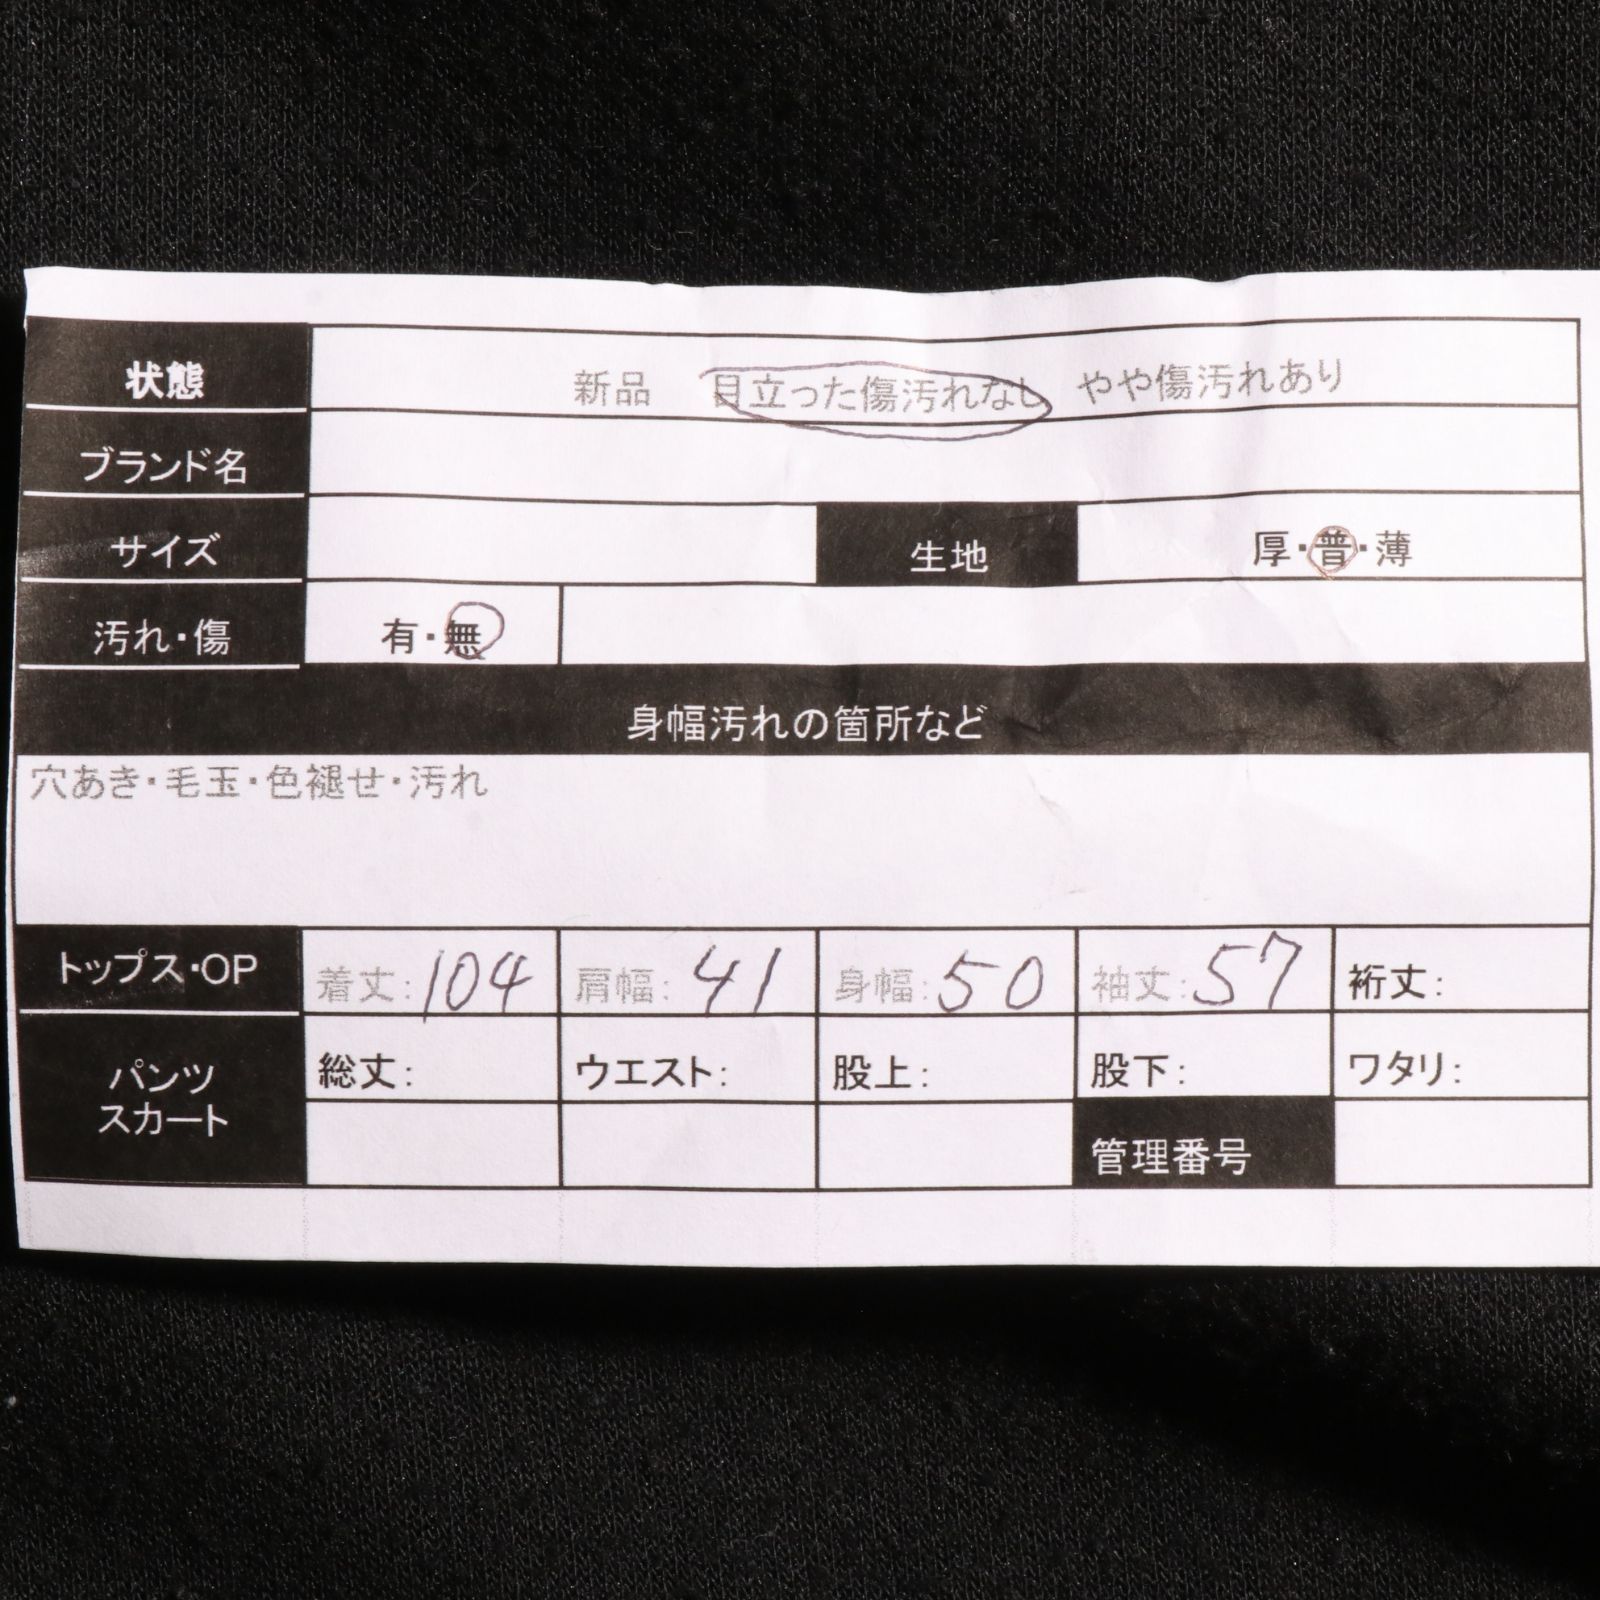 状態 新品 目立った傷汚れなし やや傷汚れあり
ブランド名
サイズ 生地 厚・普・薄
汚れ・傷 有・無
身幅汚れの箇所など
穴あき・毛玉・色褪せ・汚れ
トップス・OP 着丈: 104 肩幅: 41 身幅: 50 袖丈: 57 裄丈:
パンツ スカート 総丈: ウエスト: 股上: 股下: ワタリ:
管理番号